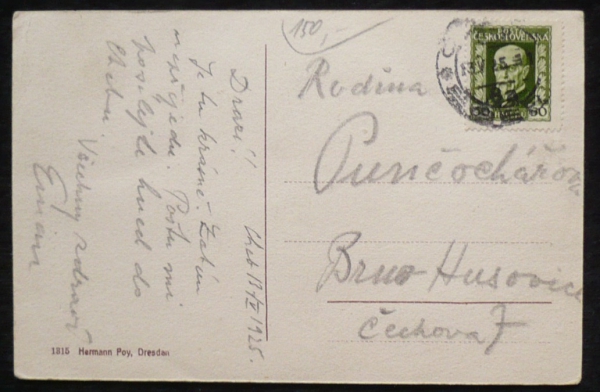 150,-
Drazí!
Je tu krásně. Zatím
nepřijedu. Poštu mi
posílejte hned do
Chebu.
Všechny zdraví
Cheb 13/IV 1925.
ČESKOSLOVENSKÁ
60
Rodina
Punčochářova
Brno Husovice
Čechova 7
1315 Hermann Poy, Dresden